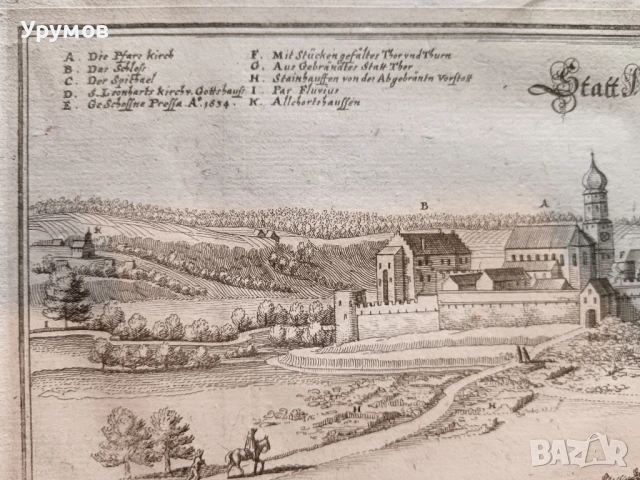 Урумов
A. Die Pfarr kirch
B. Das Schloß
C. Der Spithael
D. S. Leonharts kirch v. Gottshauß
E. GeSchoßne Pressa Aº. 1634.
F. Mit Stücken gefältes Thor vnd Thurn
G. Auß Gebrändtes Statt Thor
H. Stainhauffen von der Abgebräntn Vorstatt
I. Par Fluvius
K. Allchortshaussen
Statt
K
B
A
H
H
H
BAZAR
bg